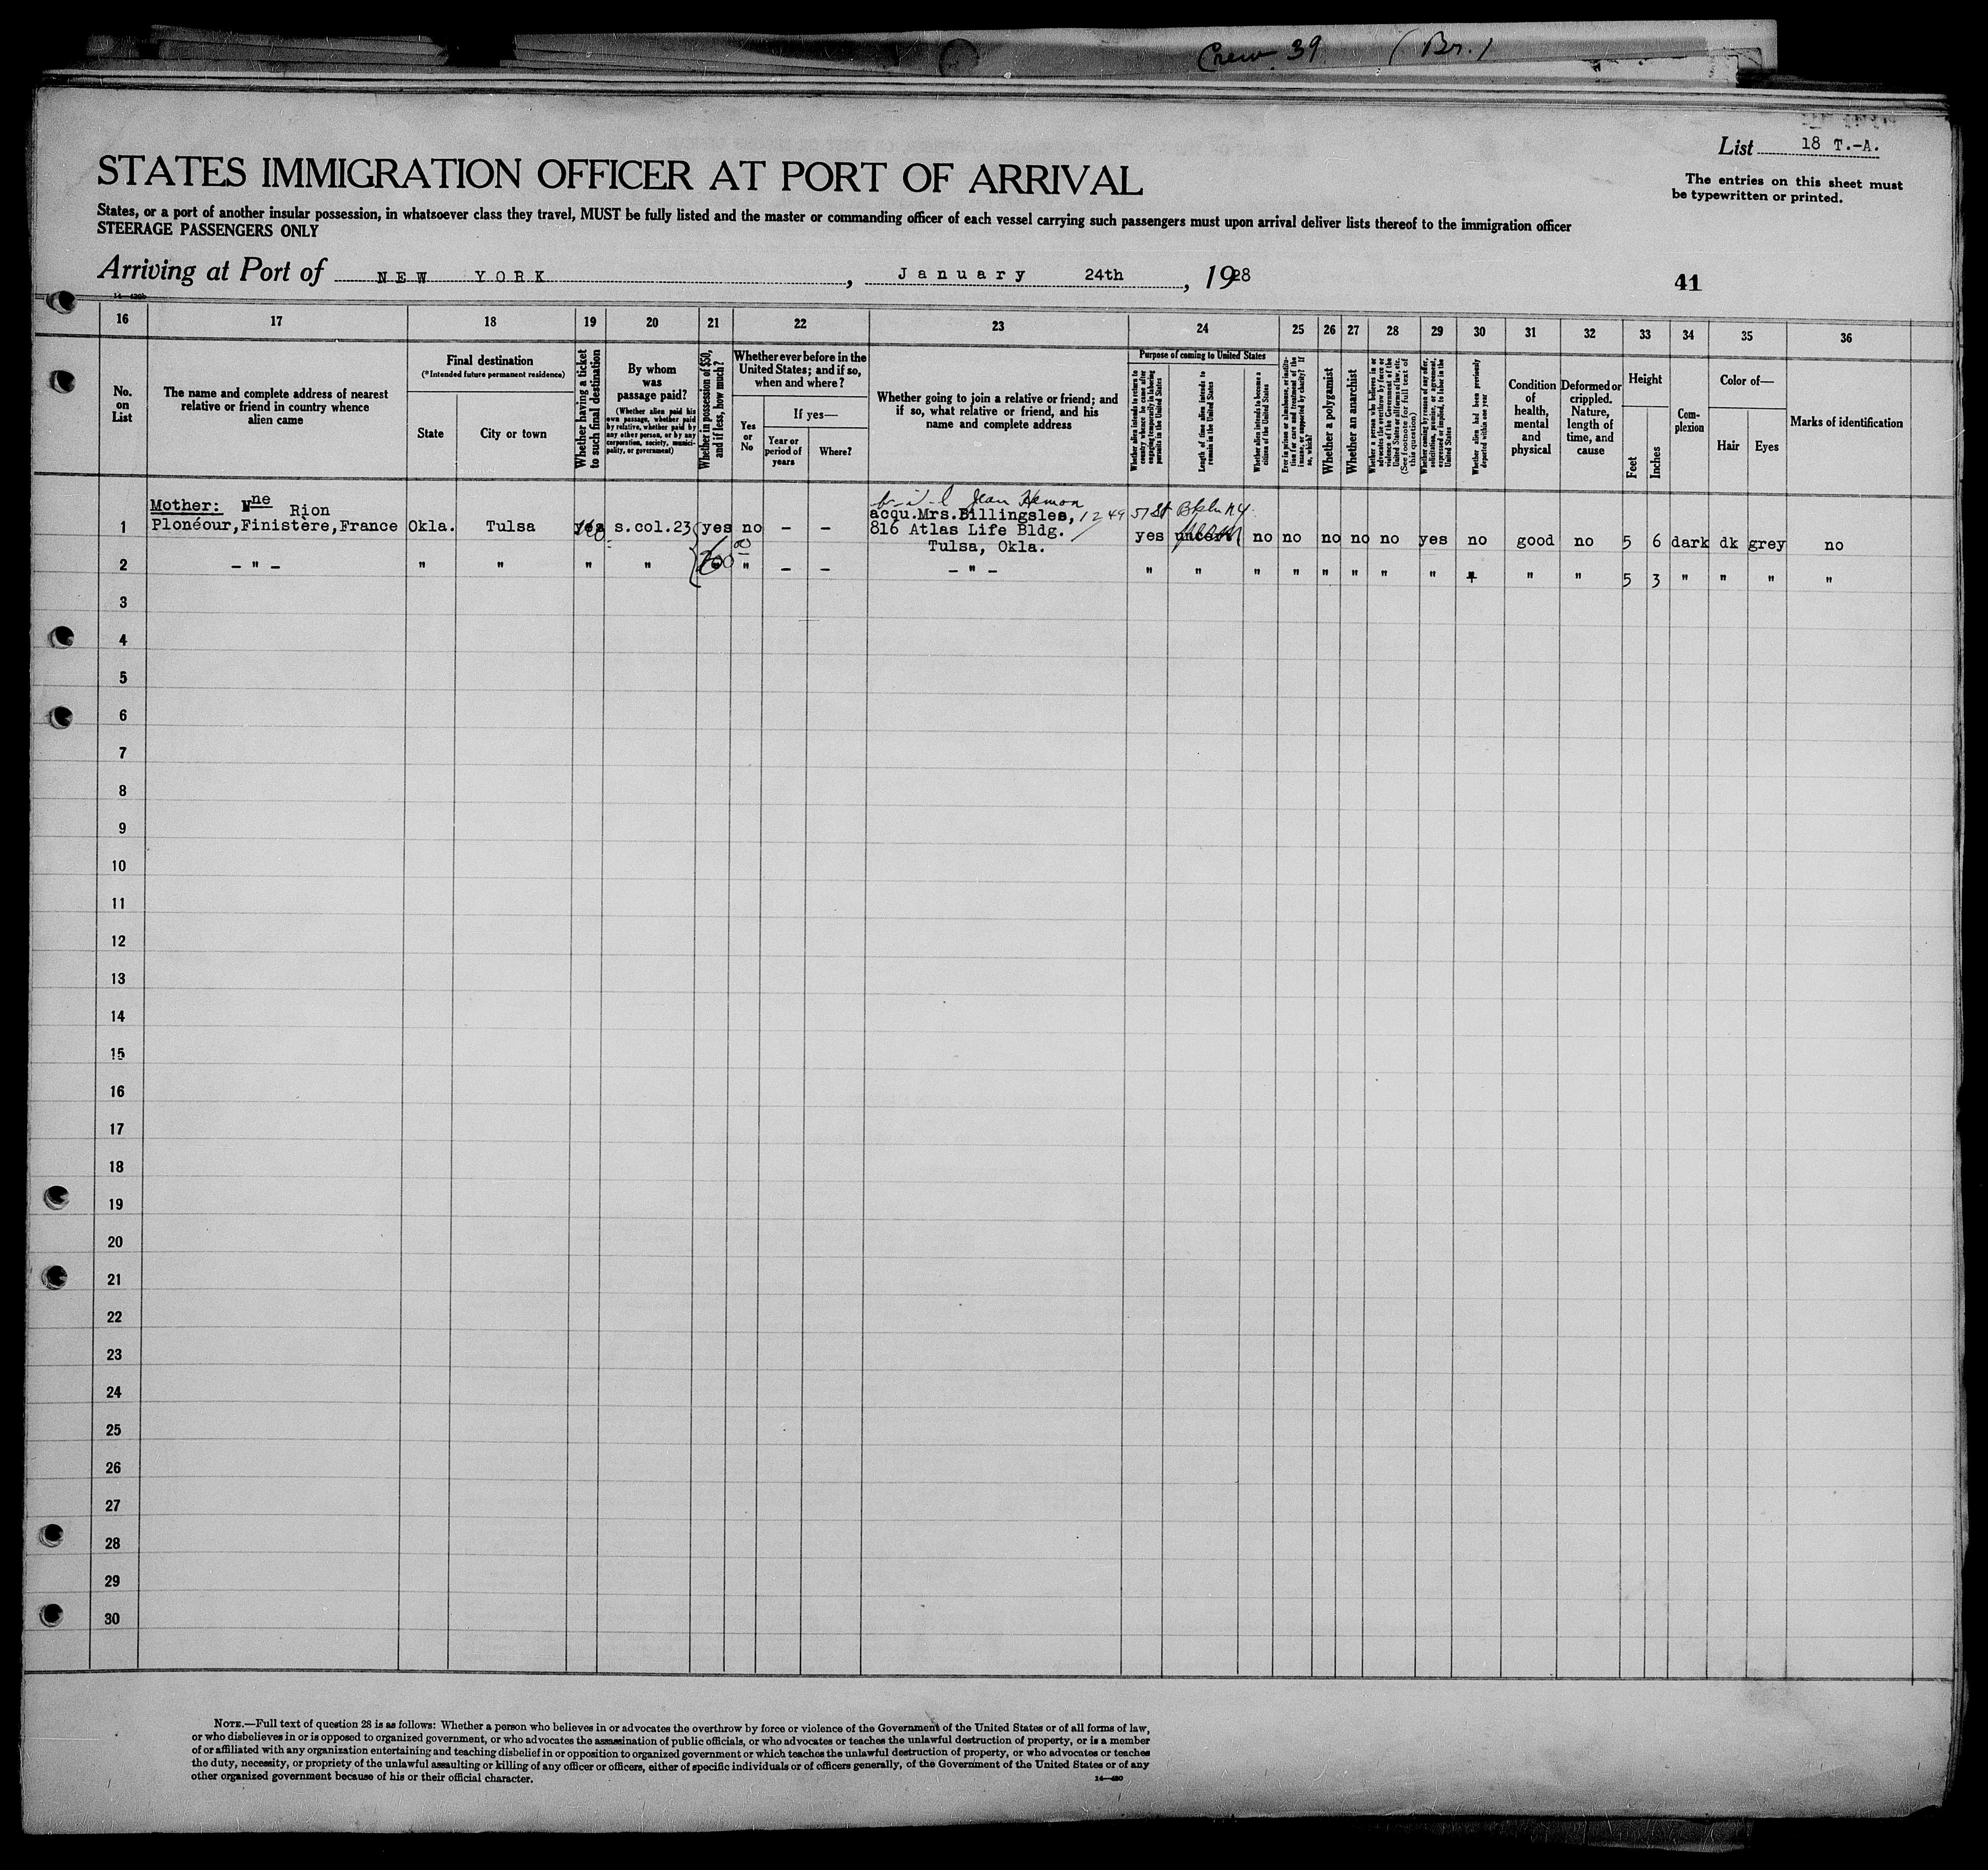 Crew 39 (Br.)
List 18 T.-A.
The entries on this sheet must
be typewritten or printed.
STATES IMMIGRATION OFFICER AT PORT OF ARRIVAL
States, or a port of another insular possession, in whatsoever class they travel, MUST be fully listed and the master or commanding officer of each vessel carrying such passengers must upon arrival deliver lists thereof to the immigration officer
STEERAGE PASSENGERS ONLY
Arriving at Port of NEW YORK, January 24th, 1928
41
14—420b
16 17 18 19 20 21 22 23 24 25 26 27 28 29 30 31 32 33 34 35 36
No. on List
The name and complete address of nearest relative or friend in country whence alien came
Final destination
(*Intended future permanent residence)
State
City or town
Whether having a ticket to such final destination
By whom was passage paid?
(Whether alien paid his own passage, whether paid by relative, whether paid by any other person, or by any corporation, society, municipality, or government)
Whether in possession of $50, and if less, how much?
Whether ever before in the United States; and if so, when and where?
Yes or No
If yes—
Year or period of years
Where?
Whether going to join a relative or friend; and if so, what relative or friend, and his name and complete address
Purpose of coming to United States
Whether alien intends to return to country whence he came after engaging temporarily in laboring pursuits in the United States
Length of time alien intends to remain in the United States
Whether alien intends to become a citizen of the United States
Ever in prison or almshouse, or institution for care and treatment of the insane, or supported by charity? If so, which?
Whether a polygamist
Whether an anarchist
Whether a person who believes in or advocates the overthrow by force or violence of the Government of the United States or all forms of law, etc. (See footnote for full text of this question)
Whether coming by reason of any offer, solicitation, promise, or agreement, expressed or implied, to labor in the United States
Whether alien had been previously deported within one year
Condition of health, mental and physical
Deformed or crippled. Nature, length of time, and cause
Height
Feet
Inches
Complexion
Color of—
Hair
Eyes
Marks of identification
Jean Hemon
Mother: Vne Rion
acqu.Mrs.Billingslea, 1249 51 St Bkln N.Y.
1 Plonéour,Finistère,France Okla. Tulsa yes s.col.23 yes no – – 816 Atlas Life Bldg. yes uncert no no no no no yes no good no 5 6 dark dk grey no
Tulsa, Okla.
2 – " – " " " " " – – – " – " " " " " " " " " " 5 3 " " " "
3
4
5
6
7
8
9
10
11
12
13
14
15
16
17
18
19
20
21
22
23
24
25
26
27
28
29
30
NOTE.—Full text of question 28 is as follows: Whether a person who believes in or advocates the overthrow by force or violence of the Government of the United States or of all forms of law,
or who disbelieves in or is opposed to organized government, or who advocates the assassination of public officials, or who advocates or teaches the unlawful destruction of property, or is a member
of or affiliated with any organization entertaining and teaching disbelief in or opposition to organized government or which teaches the unlawful destruction of property, or who advocates or teaches
the duty, necessity, or propriety of the unlawful assaulting or killing of any officer or officers, either of specific individuals or of officers generally, of the Government of the United States or of any
other organized government because of his or their official character.
14—420